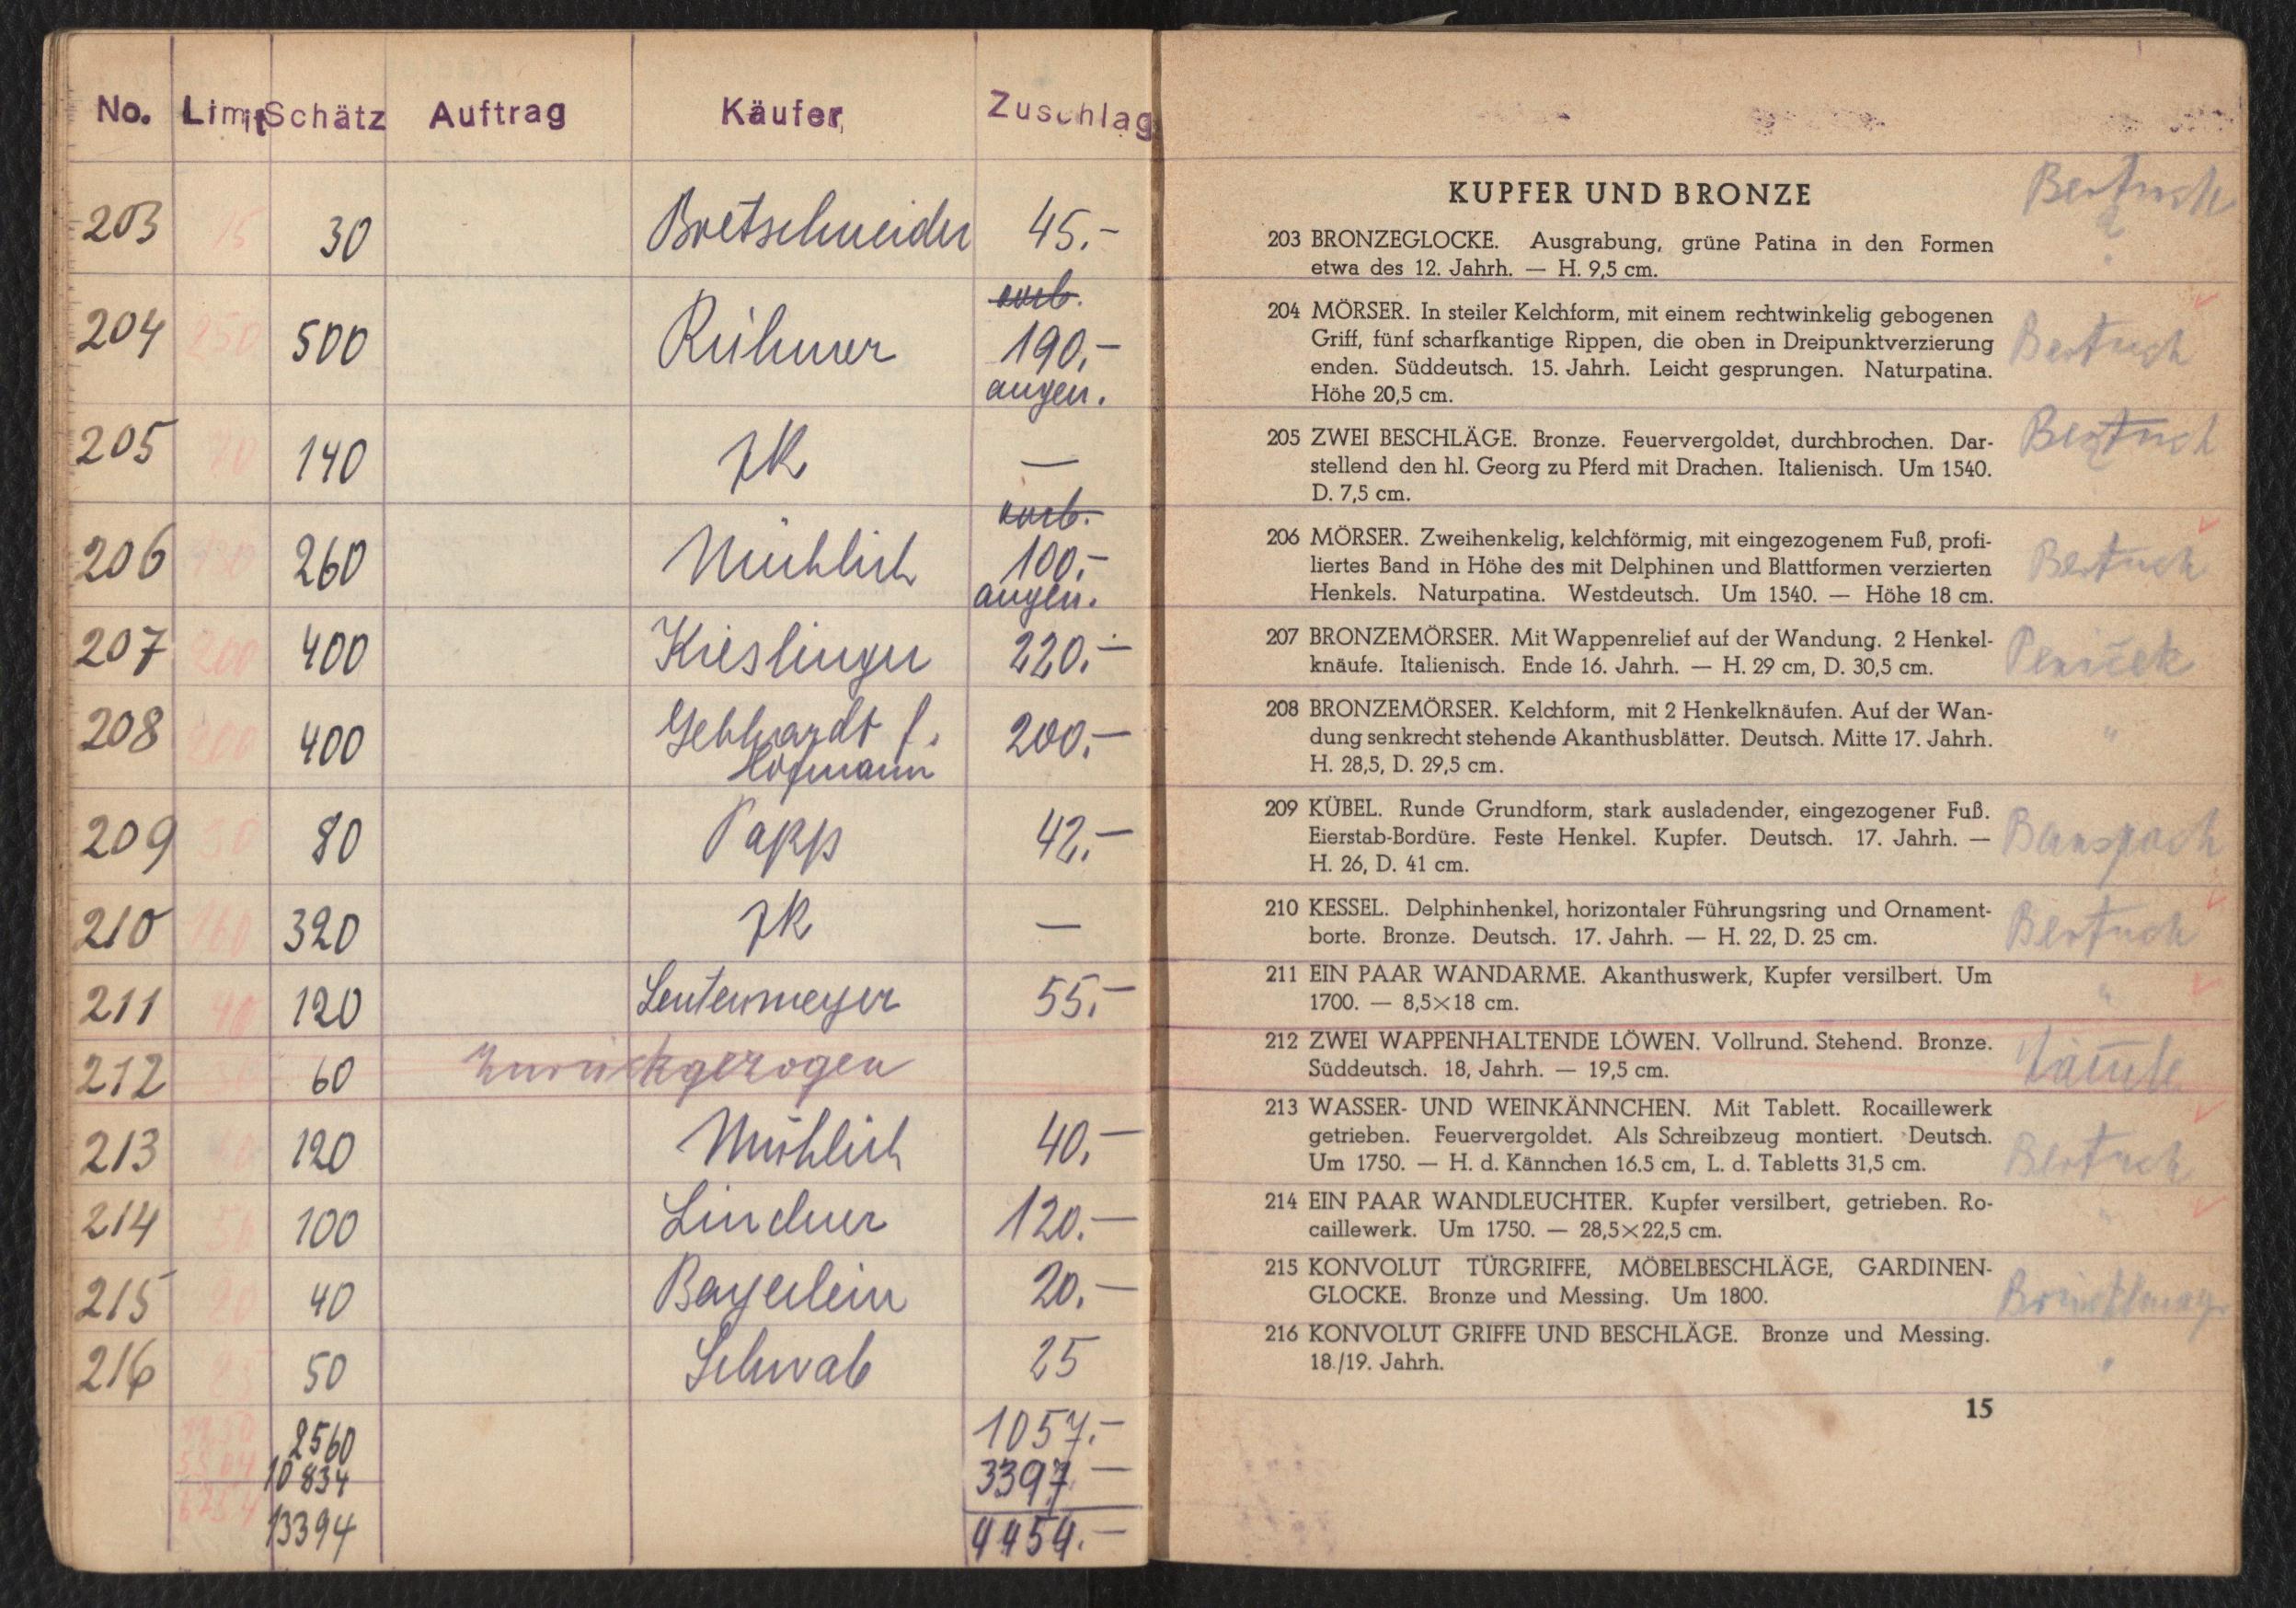 No. Limit Schätz Auftrag Käufer Zuschlag
203 15 30 Bretschneider 45.-
vorb.
204 250 500 Rühmer 190,-
angen.
205 70 140 ZK —
vorb.
206 130 260 Mühlich 100.-
angen.
207 200 400 Kieslinger 220.-
208 200 400 Gebhardt f. 200.-
Hofmann
209 50 80 Papp 42.-
210 160 320 ZK —
211 90 120 Leutenmeyer 55,-
212 60 Zurückgezogen
213 60 120 Mühlich 40,-
214 50 100 Lindner 120.-
215 20 40 Bayerlein 20.-
216 25 50 Schwab 25
2560 1057.-
10834 3397 -
13394 4454.-
KUPFER UND BRONZE
Bertuch
203 BRONZEGLOCKE. Ausgrabung, grüne Patina in den Formen
etwa des 12. Jahrh. — H. 9,5 cm.
204 MÖRSER. In steiler Kelchform, mit einem rechtwinkelig gebogenen
Griff, fünf scharfkantige Rippen, die oben in Dreipunktverzierung Bertuch
enden. Süddeutsch. 15. Jahrh. Leicht gesprungen. Naturpatina.
Höhe 20,5 cm.
205 ZWEI BESCHLÄGE. Bronze. Feuervergoldet, durchbrochen. Dar- Bertuch
stellend den hl. Georg zu Pferd mit Drachen. Italienisch. Um 1540.
D. 7,5 cm.
206 MÖRSER. Zweihenkelig, kelchförmig, mit eingezogenem Fuß, profi-
liertes Band in Höhe des mit Delphinen und Blattformen verzierten Bertuch
Henkels. Naturpatina. Westdeutsch. Um 1540. — Höhe 18 cm.
207 BRONZEMÖRSER. Mit Wappenrelief auf der Wandung. 2 Henkel-
knäufe. Italienisch. Ende 16. Jahrh. — H. 29 cm, D. 30,5 cm. Peniček
208 BRONZEMÖRSER. Kelchform, mit 2 Henkelknäufen. Auf der Wan-
dung senkrecht stehende Akanthusblätter. Deutsch. Mitte 17. Jahrh. "
H. 28,5, D. 29,5 cm.
209 KÜBEL. Runde Grundform, stark ausladender, eingezogener Fuß.
Eierstab-Bordüre. Feste Henkel. Kupfer. Deutsch. 17. Jahrh. —
H. 26, D. 41 cm.
210 KESSEL. Delphinhenkel, horizontaler Führungsring und Ornament-
borte. Bronze. Deutsch. 17. Jahrh. — H. 22, D. 25 cm. Bertuch
211 EIN PAAR WANDARME. Akanthuswerk, Kupfer versilbert. Um
1700. — 8,5×18 cm. "
212 ZWEI WAPPENHALTENDE LÖWEN. Vollrund. Stehend. Bronze.
Süddeutsch. 18, Jahrh. — 19,5 cm.
213 WASSER- UND WEINKÄNNCHEN. Mit Tablett. Rocaillewerk
getrieben. Feuervergoldet. Als Schreibzeug montiert. Deutsch.
Um 1750. — H. d. Kännchen 16.5 cm, L. d. Tabletts 31,5 cm. Bertuch
214 EIN PAAR WANDLEUCHTER. Kupfer versilbert, getrieben. Ro-
caillewerk. Um 1750. — 28,5×22,5 cm. "
215 KONVOLUT TÜRGRIFFE, MÖBELBESCHLÄGE, GARDINEN-
GLOCKE. Bronze und Messing. Um 1800.
216 KONVOLUT GRIFFE UND BESCHLÄGE. Bronze und Messing.
18./19. Jahrh.
15